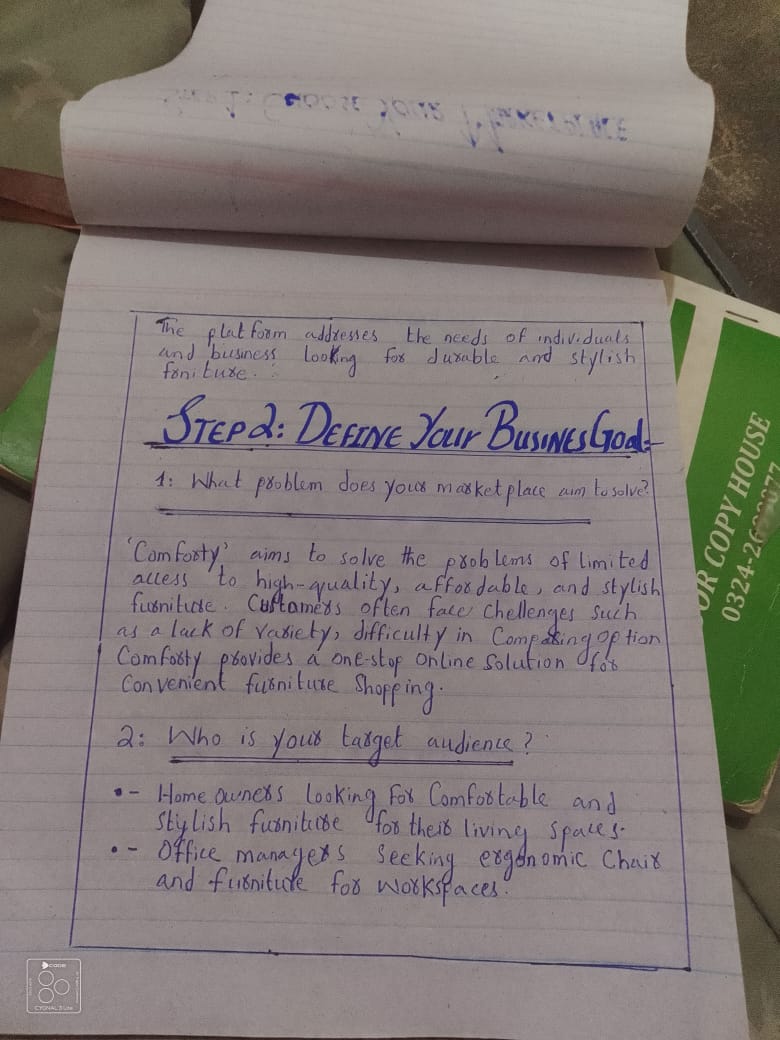 Step 1: Choose Your Marketplace
The platform addresses the needs of individuals
and business looking for durable and stylish
foniture.
STEP 2: DEFINE Your BUSINES Goal:-
1: What problem does your marketplace aim to solve?
'Comforty' aims to solve the problems of limited
access to high-quality, affordable, and stylish
furniture. Customers often face Chellenges such
as a lack of variety, difficulty in Comparing option
Comforty provides a one-stop Online Solution for
Convenient furniture Shopping.
2: Who is your target audience?
•- Home owners Looking for Comfortable and
stylish furniture for their living spaces.
•- Office managers Seeking ergonomic Chair
and furniture for Workspaces.
OR COPY HOUSE
0324-26
CODE
CYGNAL 3 Lite